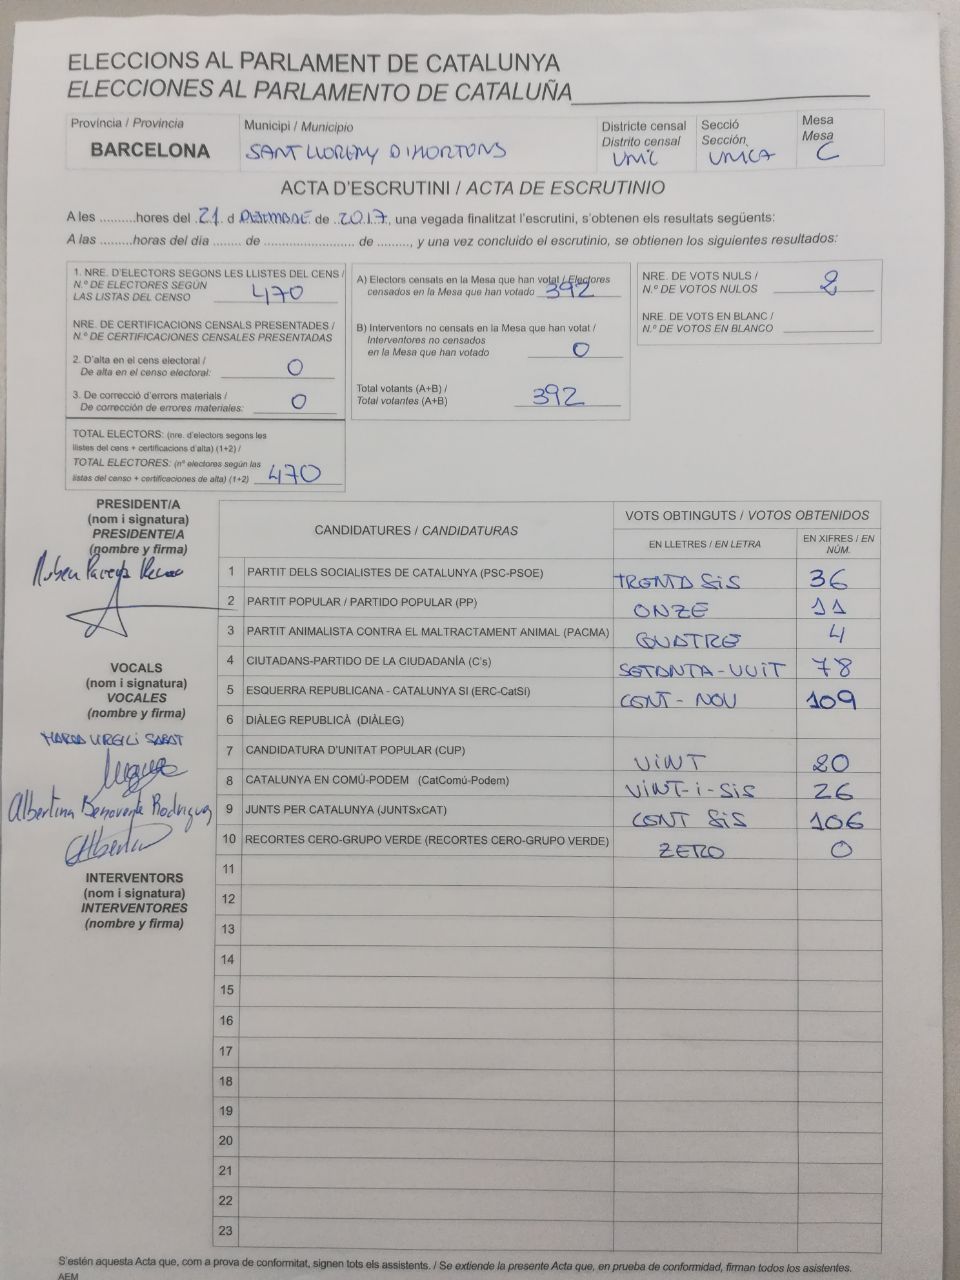 ELECCIONS AL PARLAMENT DE CATALUNYA
ELECCIONES AL PARLAMENTO DE CATALUÑA
Província / Provincia
BARCELONA
Municipi / Municipio
SANT LLORENÇ D'HORTONS
Districte censal
Distrito censal
UNIC
Secció
Sección
UNICA
Mesa
Mesa
C
ACTA D'ESCRUTINI / ACTA DE ESCRUTINIO
A les ..........hores del 21 d DESEMBRE de 2017, una vegada finalitzat l'escrutini, s'obtenen els resultats següents:
A las ..........horas del día ........ de ......................... de .........., y una vez concluido el escrutinio, se obtienen los siguientes resultados:
1. NRE. D'ELECTORS SEGONS LES LLISTES DEL CENS /
N.º DE ELECTORES SEGÚN
LAS LISTAS DEL CENSO 470
NRE. DE CERTIFICACIONS CENSALS PRESENTADES /
N.º DE CERTIFICACIONES CENSALES PRESENTADAS
2. D'alta en el cens electoral /
De alta en el censo electoral: 0
3. De correcció d'errors materials /
De corrección de errores materiales: 0
TOTAL ELECTORS: (nre. d'electors segons les
llistes del cens + certificacions d'alta) (1+2) /
TOTAL ELECTORES: (nº electores según las
listas del censo + certificaciones de alta) (1+2) 470
A) Electors censats en la Mesa que han votat / Electores
censados en la Mesa que han votado 392
B) Interventors no censats en la Mesa que han votat /
Interventores no censados
en la Mesa que han votado 0
Total votants (A+B) /
Total votantes (A+B) 392
NRE. DE VOTS NULS /
N.º DE VOTOS NULOS 2
NRE. DE VOTS EN BLANC /
N.º DE VOTOS EN BLANCO
PRESIDENT/A
(nom i signatura)
PRESIDENTE/A
(nombre y firma)
VOCALS
(nom i signatura)
VOCALES
(nombre y firma)
MARIA VIRGILI SABAT
Albertina Benavente Rodriguez
Alberta
INTERVENTORS
(nom i signatura)
INTERVENTORES
(nombre y firma)
CANDIDATURES / CANDIDATURAS
VOTS OBTINGUTS / VOTOS OBTENIDOS
EN LLETRES / EN LETRA
EN XIFRES / EN NÚM.
1 PARTIT DELS SOCIALISTES DE CATALUNYA (PSC-PSOE) TRENTA SIS 36
2 PARTIT POPULAR / PARTIDO POPULAR (PP) ONZE 11
3 PARTIT ANIMALISTA CONTRA EL MALTRACTAMENT ANIMAL (PACMA) QUATRE 4
4 CIUTADANS-PARTIDO DE LA CIUDADANÍA (C's) SETANTA-VUIT 78
5 ESQUERRA REPUBLICANA - CATALUNYA SI (ERC-CatSí) CENT-NOU 109
6 DIÀLEG REPUBLICÀ (DIÀLEG)
7 CANDIDATURA D'UNITAT POPULAR (CUP) VINT 20
8 CATALUNYA EN COMÚ-PODEM (CatComú-Podem) VINT-I-SIS 26
9 JUNTS PER CATALUNYA (JUNTSxCAT) CENT SIS 106
10 RECORTES CERO-GRUPO VERDE (RECORTES CERO-GRUPO VERDE) ZERO 0
11
12
13
14
15
16
17
18
19
20
21
22
23
S'estén aquesta Acta que, com a prova de conformitat, signen tots els assistents. / Se extiende la presente Acta que, en prueba de conformidad, firman todos los asistentes.
AEM